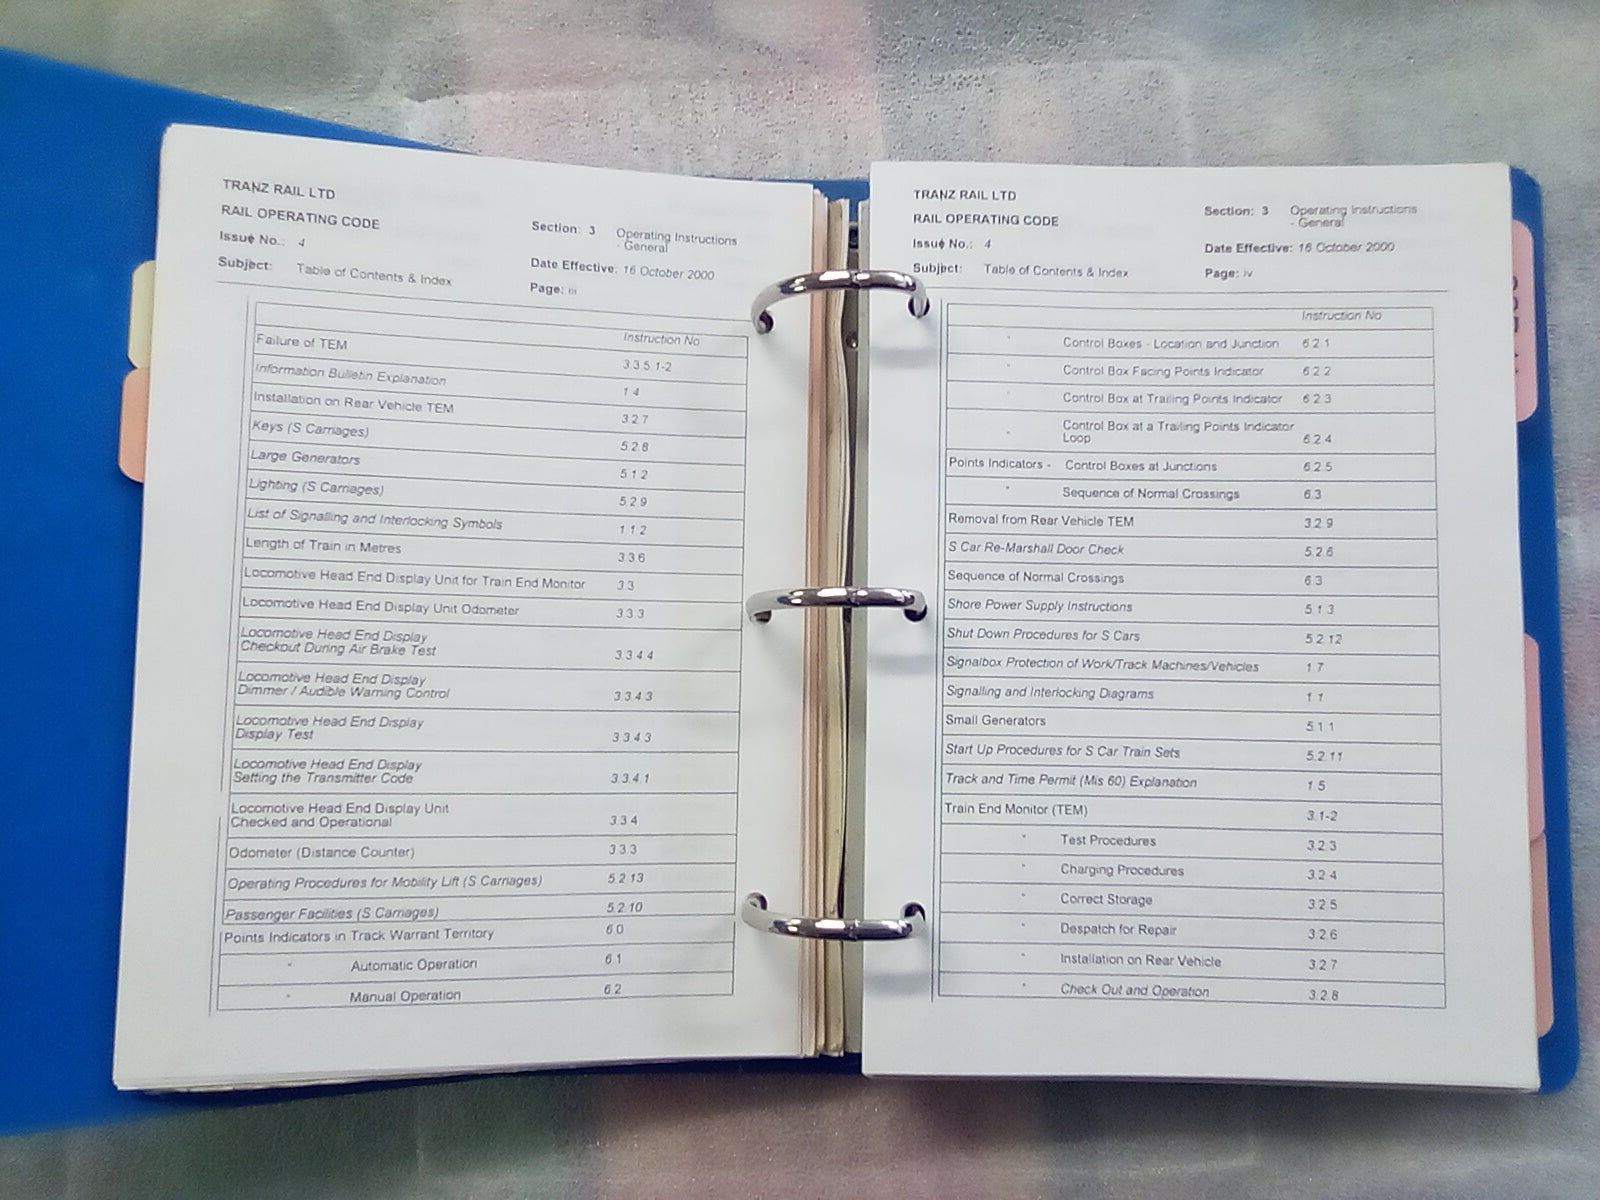 TRANZ RAIL LTD
RAIL OPERATING CODE
Issue No.: 4
Subject: Table of Contents & Index
Section: 3 Operating Instructions
- General
Date Effective: 16 October 2000
Page: iii
Instruction No
Failure of TEM 3.3.5.1-2
Information Bulletin Explanation 1.4
Installation on Rear Vehicle TEM 3.2.7
Keys (S Carriages) 5.2.8
Large Generators 5.1.2
Lighting (S Carriages) 5.2.9
List of Signalling and Interlocking Symbols 1.1.2
Length of Train in Metres 3.3.6
Locomotive Head End Display Unit for Train End Monitor 3.3
Locomotive Head End Display Unit Odometer 3.3.3
Locomotive Head End Display
Checkout During Air Brake Test 3.3.4.4
Locomotive Head End Display
Dimmer / Audible Warning Control 3.3.4.3
Locomotive Head End Display
Display Test 3.3.4.3
Locomotive Head End Display
Setting the Transmitter Code 3.3.4.1
Locomotive Head End Display Unit
Checked and Operational 3.3.4
Odometer (Distance Counter) 3.3.3
Operating Procedures for Mobility Lift (S Carriages) 5.2.13
Passenger Facilities (S Carriages) 5.2.10
Points Indicators in Track Warrant Territory 6.0
" Automatic Operation 6.1
" Manual Operation 6.2
TRANZ RAIL LTD
RAIL OPERATING CODE
Issue No.: 4
Subject: Table of Contents & Index
Section: 3 Operating Instructions
- General
Date Effective: 16 October 2000
Page: iv
Instruction No
" Control Boxes - Location and Junction 6.2.1
" Control Box Facing Points Indicator 6.2.2
" Control Box at Trailing Points Indicator 6.2.3
" Control Box at a Trailing Points Indicator
Loop 6.2.4
Points Indicators - Control Boxes at Junctions 6.2.5
" Sequence of Normal Crossings 6.3
Removal from Rear Vehicle TEM 3.2.9
S Car Re-Marshall Door Check 5.2.6
Sequence of Normal Crossings 6.3
Shore Power Supply Instructions 5.1.3
Shut Down Procedures for S Cars 5.2.12
Signalbox Protection of Work/Track Machines/Vehicles 1.7
Signalling and Interlocking Diagrams 1.1
Small Generators 5.1.1
Start Up Procedures for S Car Train Sets 5.2.11
Track and Time Permit (Mis 60) Explanation 1.5
Train End Monitor (TEM) 3.1-2
" Test Procedures 3.2.3
" Charging Procedures 3.2.4
" Correct Storage 3.2.5
" Despatch for Repair 3.2.6
" Installation on Rear Vehicle 3.2.7
" Check Out and Operation 3.2.8